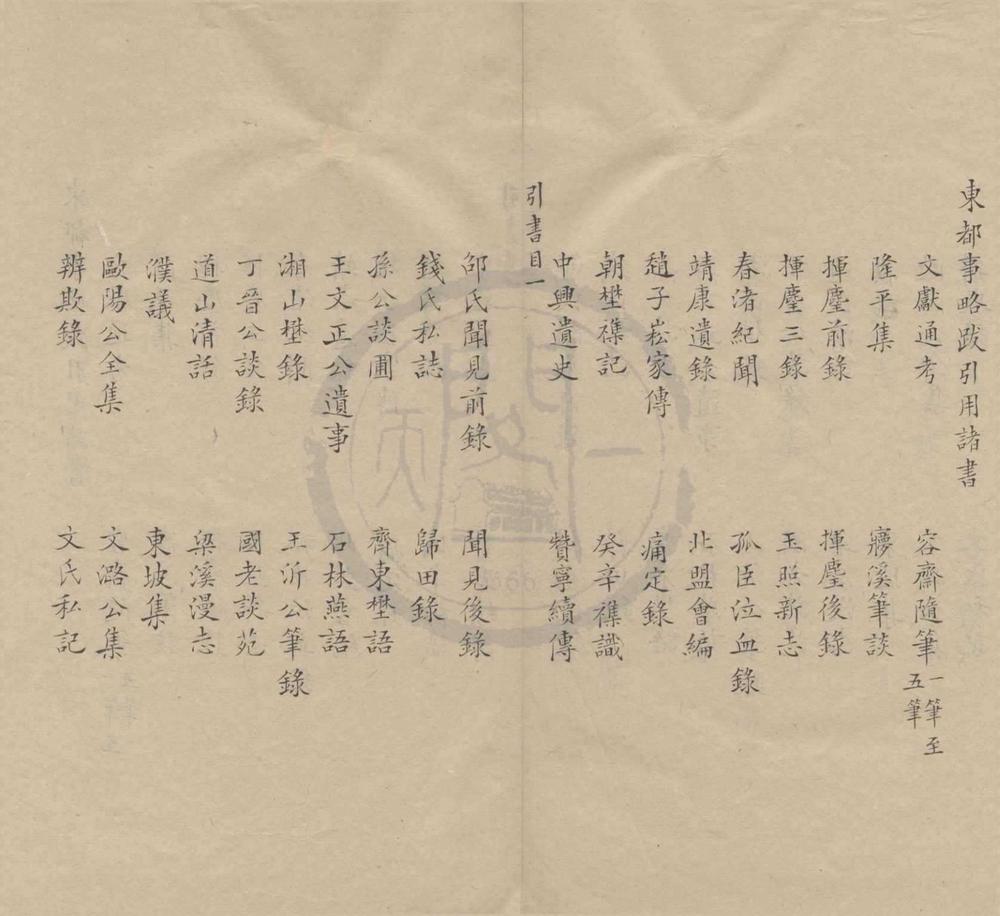 東都事略跋引用諸書
文獻通考
容齋隨筆一筆至五筆
隆平集
夢溪筆談
揮麈前錄
揮麈後錄
揮麈三錄
玉照新志
春渚紀聞
孤臣泣血錄
靖康遺錄
北盟會編
趙子崧家傳
痛定錄
朝埜襍記
癸辛襍識
中興遺史
贊寧續傳
引書目一
邵氏聞見前錄
聞見後錄
錢氏私誌
歸田錄
孫公談圃
齊東埜語
王文正公遺事
石林燕語
湘山埜錄
王沂公筆錄
丁晉公談錄
國老談苑
道山清話
梁溪漫志
濮議
東坡集
歐陽公全集
文潞公集
辨欺錄
文氏私記